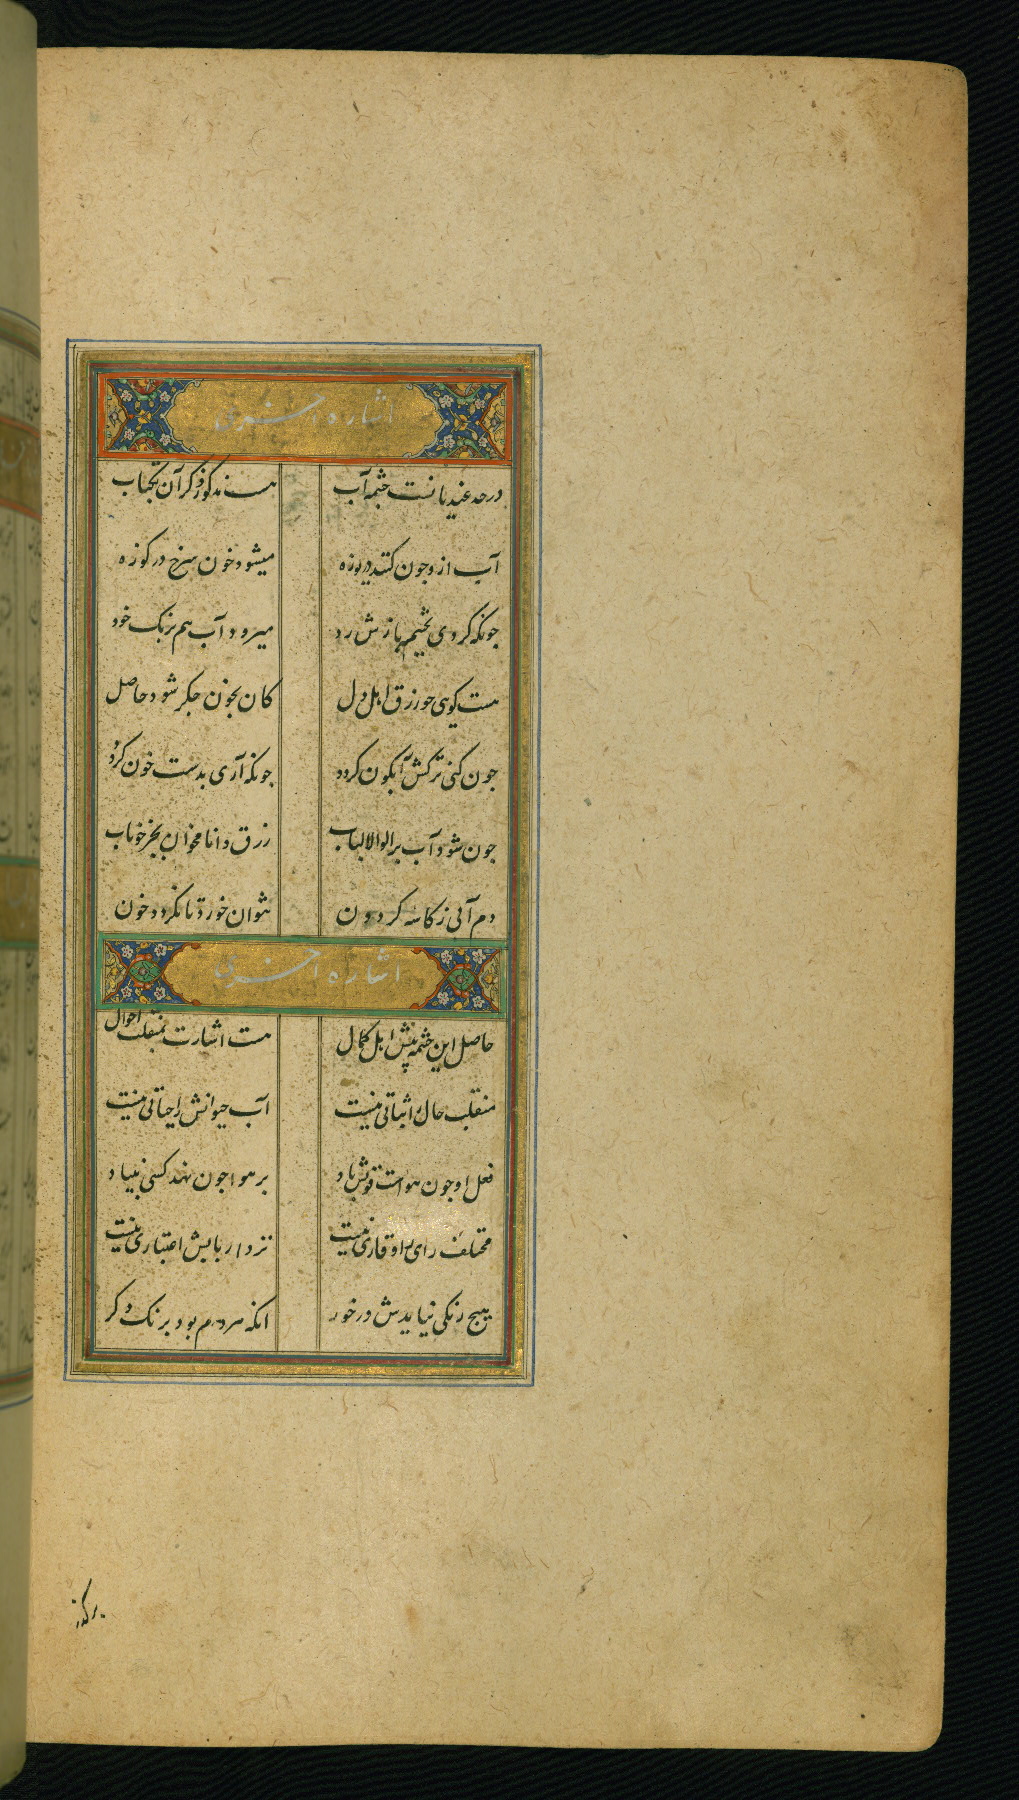 اشاره اخری
درحد غند یانست چشمه آب هست مذکور ذکر آن بکتاب
آب ازو چون کنند دریوزه میشود خون سرخ در کوزه
چونکه کردی تخم بازش رد میرود آب هم برنک خود
هست کوی جو رزق اهل دل کان بخون جکر شود حاصل
جون کنی ترکش آبکون کردد جونکه آری بدست خون کردد
جون شود آب بر الوالالباب رزق دانا مخوان بجز خوناب
دم آبی ز کاسه کردون نتوان خورد تا نکردد خون
اشاره اخری
حاصل این چشمه پیش اهل کمال هست اشارت بمنقلب احوال
منقلب حال را ثباتی نیست آب حیوانش را حیاتی نیست
فعل او جون هواست قولش باد بر هوا جون نهد کسی بنیاد
مختلف رای را وقاری نیست نزد اربابش اعتباری نیست
هیچ رنکی نیایدش در خور انکه هردم بود برنک دکر